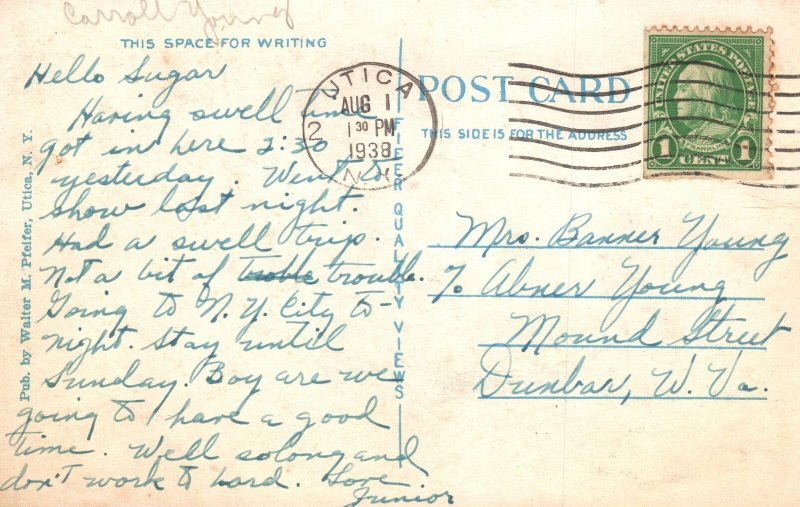 Carroll Young
THIS SPACE FOR WRITING
Hello Sugar
Having swell time
got in here 2:30
yesterday. Went to
show last night.
Had a swell trip.
Not a bit of trouble trouble.
Going to N.Y. City to-
night. Stay until
Sunday. Boy are we
going to have a good
time. Well so long and
don't work to hard. Love
Junior
Pub. by Walter M. Pfeifer, Utica, N. Y.
PFEIFER QUALITY VIEWS
UTICA
AUG 1
1 30 PM
1938
N.Y.
2
POST CARD
THIS SIDE IS FOR THE ADDRESS
UNITED STATES POSTAGE
FRANKLIN
1 CENT 1
Mrs. Banner Young
℅ Abner Young
Mound Street
Dunbar, W. Va.